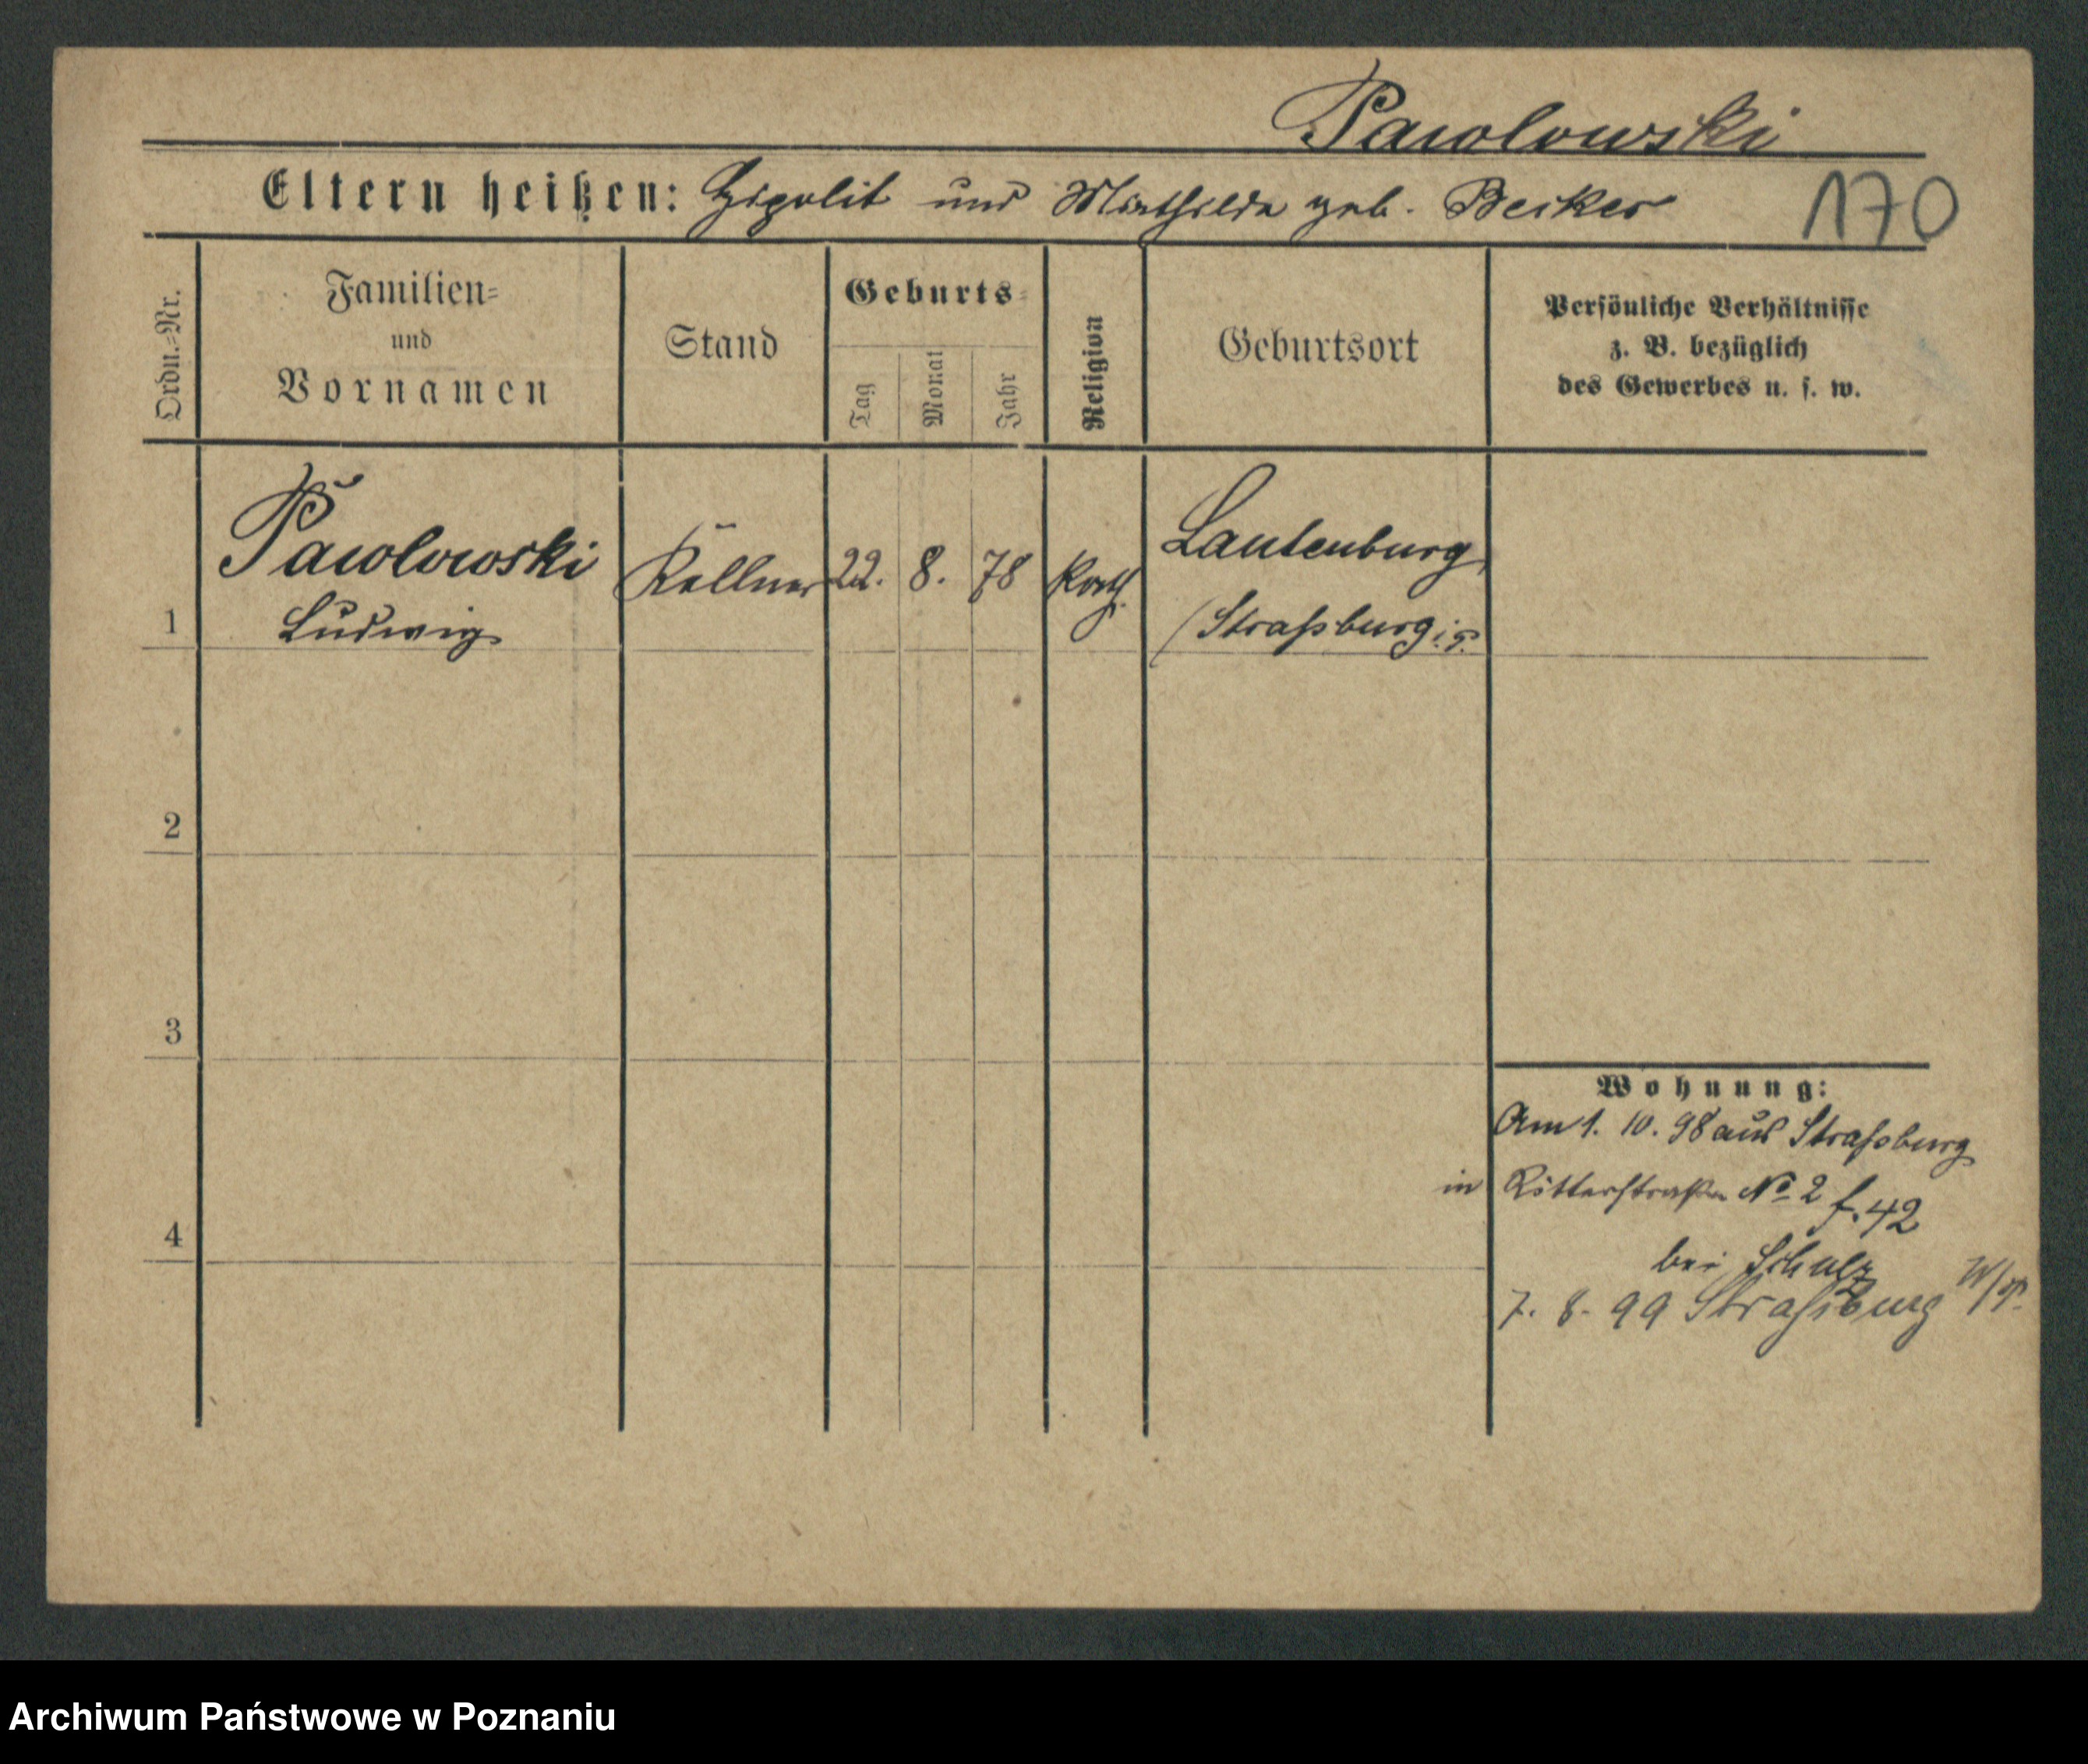 Pawlowski
Eltern heißen: Hipolit und Mathilde geb. Becker
170
Ordn.-Nr.
Familien-
und
Vornamen
Stand
Geburts-
Tag
Monat
Jahr
Religion
Geburtsort
Persönliche Verhältnisse
z. B. bezüglich
des Gewerbes u. s. w.
1
Pawlowski
Ludwig
Kellner
22.
8.
78
kath.
Lautenburg
(Straßburg
2
3
4
Wohnung:
Am 1. 10. 98 aus Straßburg
in Ritterstraße No 2 f. 42
bei Schulz
7. 8. 99 Straßburg W/P.
Archiwum Państwowe w Poznaniu